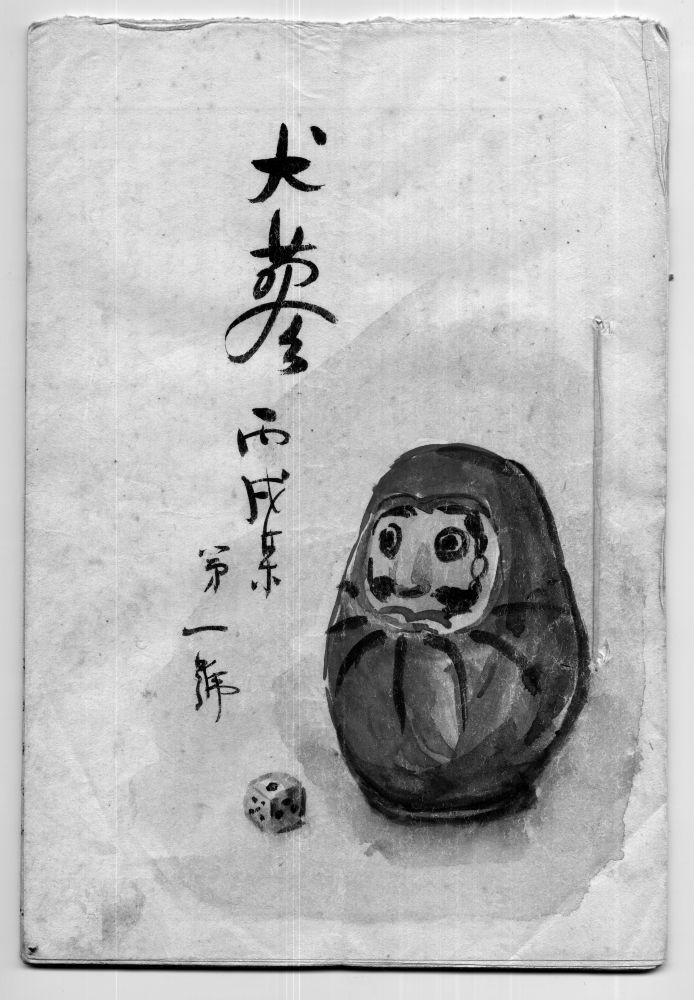 犬蓼
丙戌集
第一號